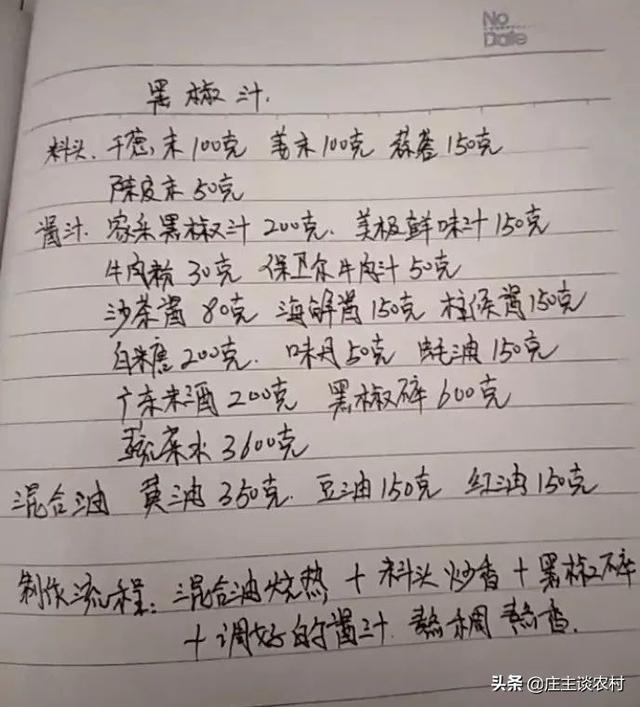 No
Date
黑椒汁.
料头. 干葱末100克 姜末100克 蒜蓉150克
陈皮末50克
酱汁. 家乐黑椒汁200克. 美极鲜味汁150克
牛肉粉30克 保卫尔牛肉汁50克
沙茶酱80克 海鲜酱150克 柱侯酱150克
白糖200克. 味丹50克 蚝油150克
广东米酒200克 黑椒碎600克
蔬菜水3600克
混合油 黄油350克. 豆油150克 红油150克
制作流程: 混合油烧热 + 料头炒香 + 黑椒碎
+ 调好的酱汁. 熬稠熬香.
头条 @庄主谈农村